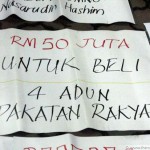 Nasarudin Hashim
RM 50 JUTA
UNTUK BELI
4 ADUN
PAKATAN RAKYA